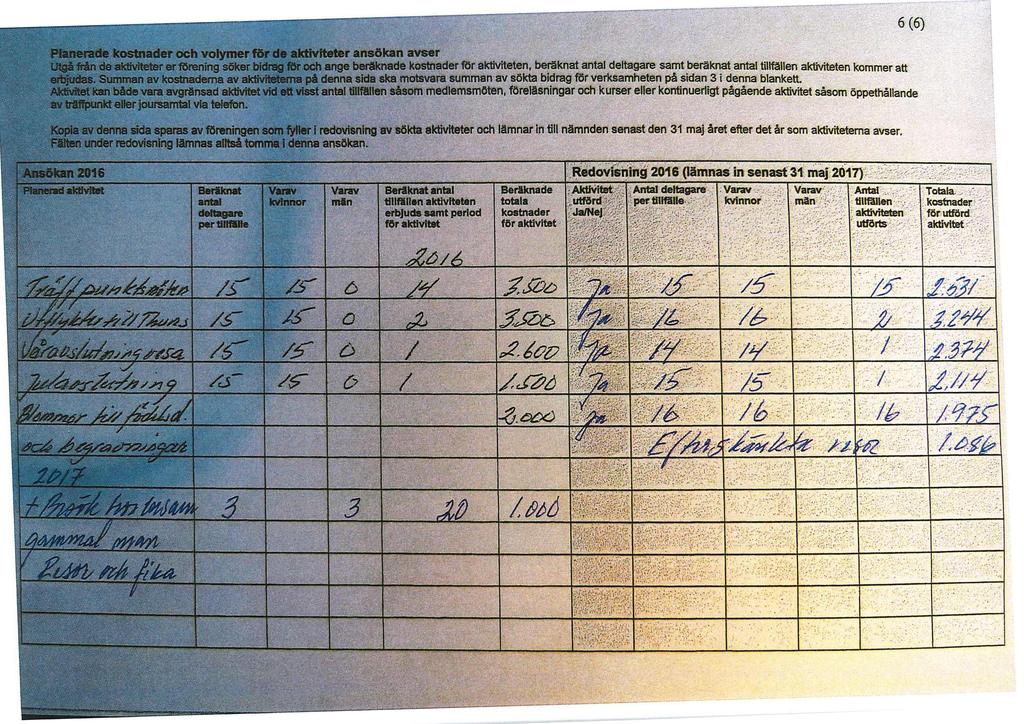 6 (6)
Planerade kostnader och volymer för de aktiviteter ansökan avser
Utgå från de aktiviteter er förening söker bidrag för och ange beräknade kostnader för aktiviteten, beräknat antal deltagare samt beräknat antal tillfällen aktiviteten kommer att
erbjudas. Summan av kostnaderna av aktiviteterna på denna sida ska motsvara summan av sökta bidrag för verksamheten på sidan 3 i denna blankett.
Aktivitet kan både vara avgränsad aktivitet vid ett visst antal tillfällen såsom medlemsmöten, föreläsningar och kurser eller kontinuerligt pågående aktivitet såsom öppethållande
av träffpunkt eller joursamtal via telefon.
Kopia av denna sida sparas av föreningen som fyller i redovisning av sökta aktiviteter och lämnar in till nämnden senast den 31 maj året efter det år som aktiviteterna avser.
Fälten under redovisning lämnas alltså tomma i denna ansökan.
Ansökan 2016 Redovisning 2016 (lämnas in senast 31 maj 2017)
Planerad aktivitet Beräknat antal deltagare per tillfälle Varav kvinnor Varav män Beräknat antal tillfällen aktiviteten erbjuds samt period för aktivitet Beräknade totala kostnader för aktivitet Aktivitet utförd Ja/Nej Antal deltagare per tillfälle Varav kvinnor Varav män Antal tillfällen aktiviteten utförts Totala kostnader för utförd aktivitet
2016
Träffpunktsmöten 15 15 0 14 3.500 Ja 15 15 15 2.531
Utflykter till Thuns 15 15 0 2 3.500 Ja 16 16 2 3.244
Våravslutning resa 15 15 0 1 2.600 Ja 14 14 1 2.374
Julavslutning 15 15 0 1 1.500 Ja 15 15 1 2.114
Blommor till födelsed. 2.000 Ja 16 16 16 1.975
och begravningar Efterskänkta resor 1.086
2017
+ Besök hos ensam 3 3 20 1.000
gammal man
Resor och fika